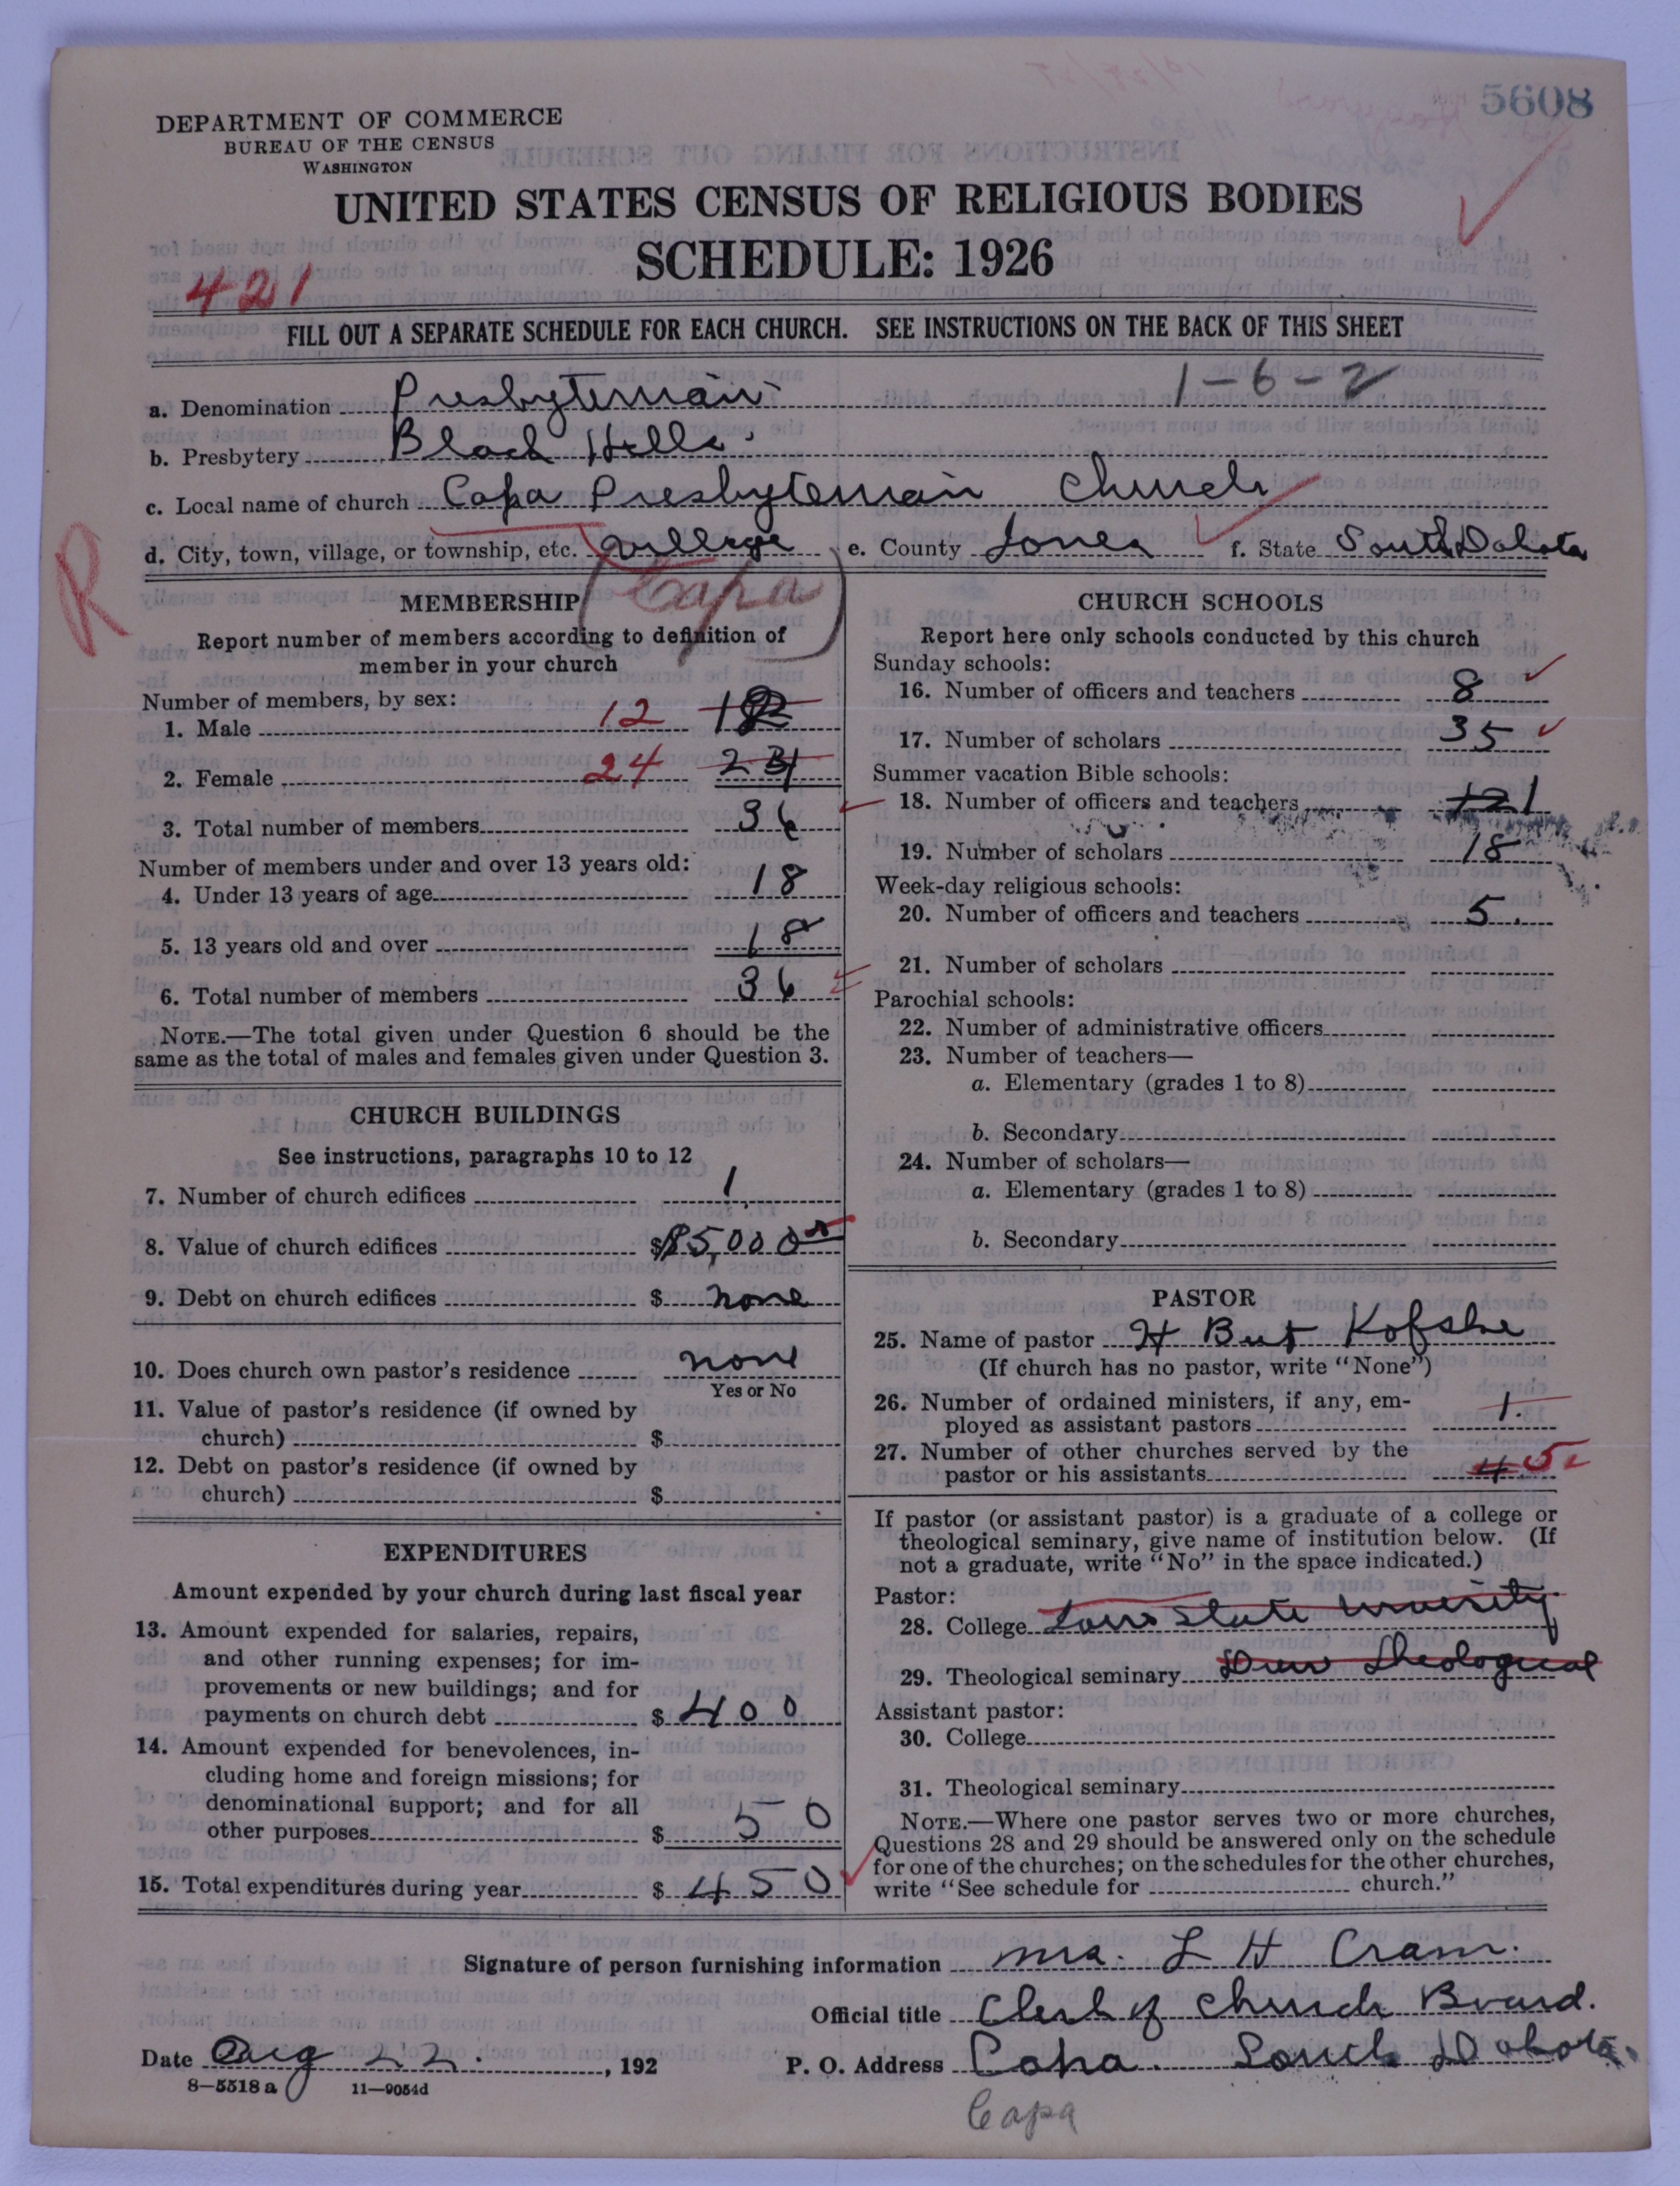 5608
DEPARTMENT OF COMMERCE
BUREAU OF THE CENSUS
WASHINGTON
UNITED STATES CENSUS OF RELIGIOUS BODIES
SCHEDULE: 1926
421
FILL OUT A SEPARATE SCHEDULE FOR EACH CHURCH. SEE INSTRUCTIONS ON THE BACK OF THIS SHEET
1-6-2
a. Denomination Presbyterian
b. Presbytery Black Hills
c. Local name of church Capa Presbyterian Church
d. City, town, village, or township, etc. village e. County Jones f. State South Dakota
R
(Capa)
MEMBERSHIP
Report number of members according to definition of
member in your church
Number of members, by sex:
1. Male 12
2. Female 24
3. Total number of members 36
Number of members under and over 13 years old:
4. Under 13 years of age 18
5. 13 years old and over 18
6. Total number of members 36
NOTE.—The total given under Question 6 should be the
same as the total of males and females given under Question 3.
CHURCH BUILDINGS
See instructions, paragraphs 10 to 12
7. Number of church edifices 1
8. Value of church edifices $5,000
9. Debt on church edifices $ none
10. Does church own pastor's residence none
Yes or No
11. Value of pastor's residence (if owned by
church) $
12. Debt on pastor's residence (if owned by
church) $
EXPENDITURES
Amount expended by your church during last fiscal year
13. Amount expended for salaries, repairs,
and other running expenses; for im-
provements or new buildings; and for
payments on church debt $ 400
14. Amount expended for benevolences, in-
cluding home and foreign missions; for
denominational support; and for all
other purposes $ 50
15. Total expenditures during year $ 450
CHURCH SCHOOLS
Report here only schools conducted by this church
Sunday schools:
16. Number of officers and teachers 8
17. Number of scholars 35
Summer vacation Bible schools:
18. Number of officers and teachers 1
19. Number of scholars 18
Week-day religious schools:
20. Number of officers and teachers 5.
21. Number of scholars
Parochial schools:
22. Number of administrative officers
23. Number of teachers—
a. Elementary (grades 1 to 8)
b. Secondary
24. Number of scholars—
a. Elementary (grades 1 to 8)
b. Secondary
PASTOR
25. Name of pastor H Burt Kofshe
(If church has no pastor, write "None")
26. Number of ordained ministers, if any, em-
ployed as assistant pastors 1.
27. Number of other churches served by the
pastor or his assistants 4 5
If pastor (or assistant pastor) is a graduate of a college or
theological seminary, give name of institution below. (If
not a graduate, write "No" in the space indicated.)
Pastor:
28. College Iowa State University
29. Theological seminary Drew Theological
Assistant pastor:
30. College
31. Theological seminary
NOTE.—Where one pastor serves two or more churches,
Questions 28 and 29 should be answered only on the schedule
for one of the churches; on the schedules for the other churches,
write "See schedule for church."
Signature of person furnishing information Mrs. L H Cram.
Official title Clerk of Church Board.
Date Aug 22. , 192 P. O. Address Capa. South Dakota.
8—5518 a 11—9054d
Capa